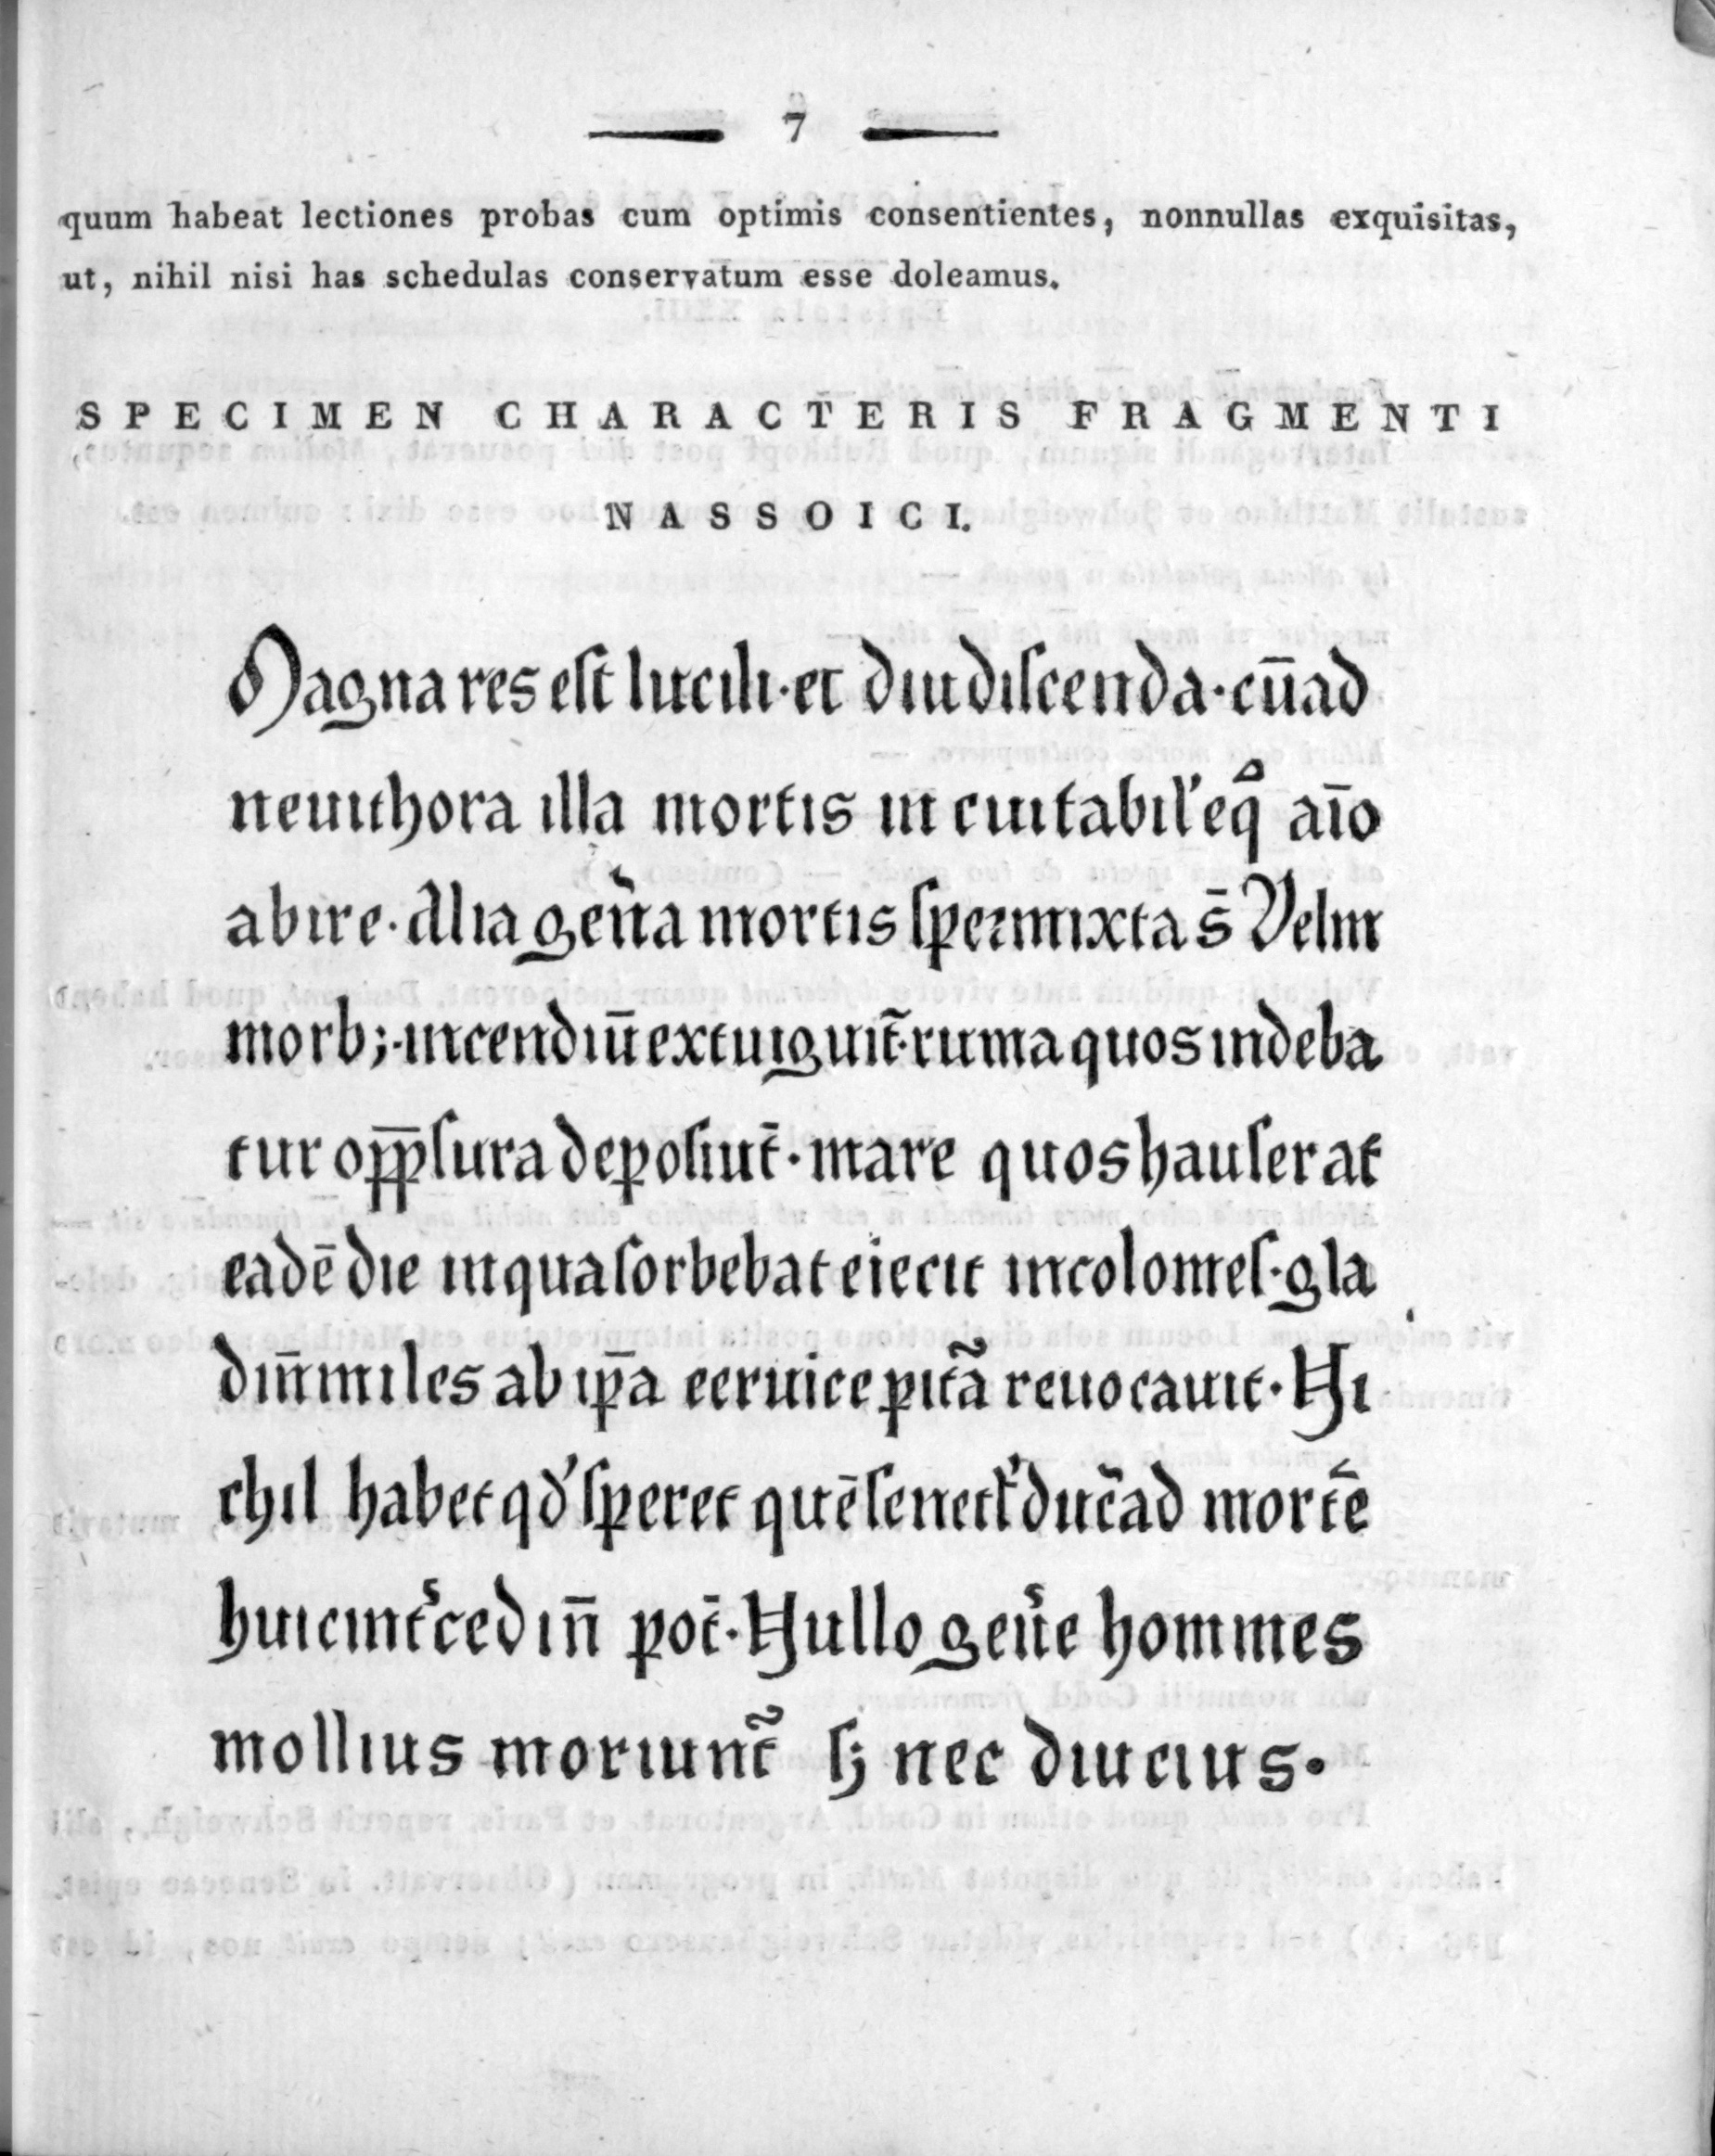 7
quum habeat lectiones probas cum optimis consentientes, nonnullas exquisitas,
ut, nihil nisi has schedulas conservatum esse doleamus.
SPECIMEN CHARACTERIS FRAGMENTI
NASSOICI.
Magna res eſt lucili · et diu diſcenda · cu̅ ad
neuithora illa mortis in euitabil' eq̊ ai̅o
abire · Alia gen̾a mortis ſpeꝛmixta s̅ Velut
morb; · incendiu̅ extuiguit᷑ · ruina quos uideba
tur opp̅ſura depoſiut̅ · mare quos hauſerat
eade̅ die inqua ſorbebat eiecit incolomeſ · gla
diu̅ miles ab ip̅a ceruice pit̃ã reuocauit · Ni
chil habet qd' ſperet que̅ ſenect᷒ duc̃ ad morte̅
huic int̾cedi n̅ pot̅ · Nullo gen̾e homines
mollius moriunt᷑ ſꝫ nec diucius ·